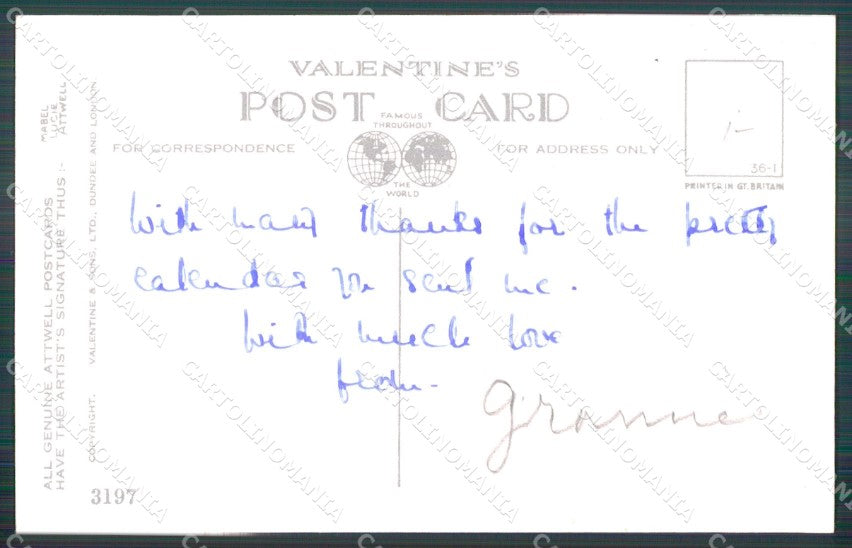 VALENTINE'S
POST CARD
FAMOUS
THROUGHOUT
THE
WORLD
FOR CORRESPONDENCE
FOR ADDRESS ONLY
i-
36-1
PRINTED IN GT. BRITAIN
With many thanks for the pretty
calendar you sent me.
With much love
from-
Grannie
ALL GENUINE ATTWELL POSTCARDS
HAVE THE ARTIST'S SIGNATURE THUS :-
MABEL
LUCIE
ATTWELL
COPYRIGHT. VALENTINE & SONS, LTD., DUNDEE AND LONDON.
3197
CARTOLINOMANIA